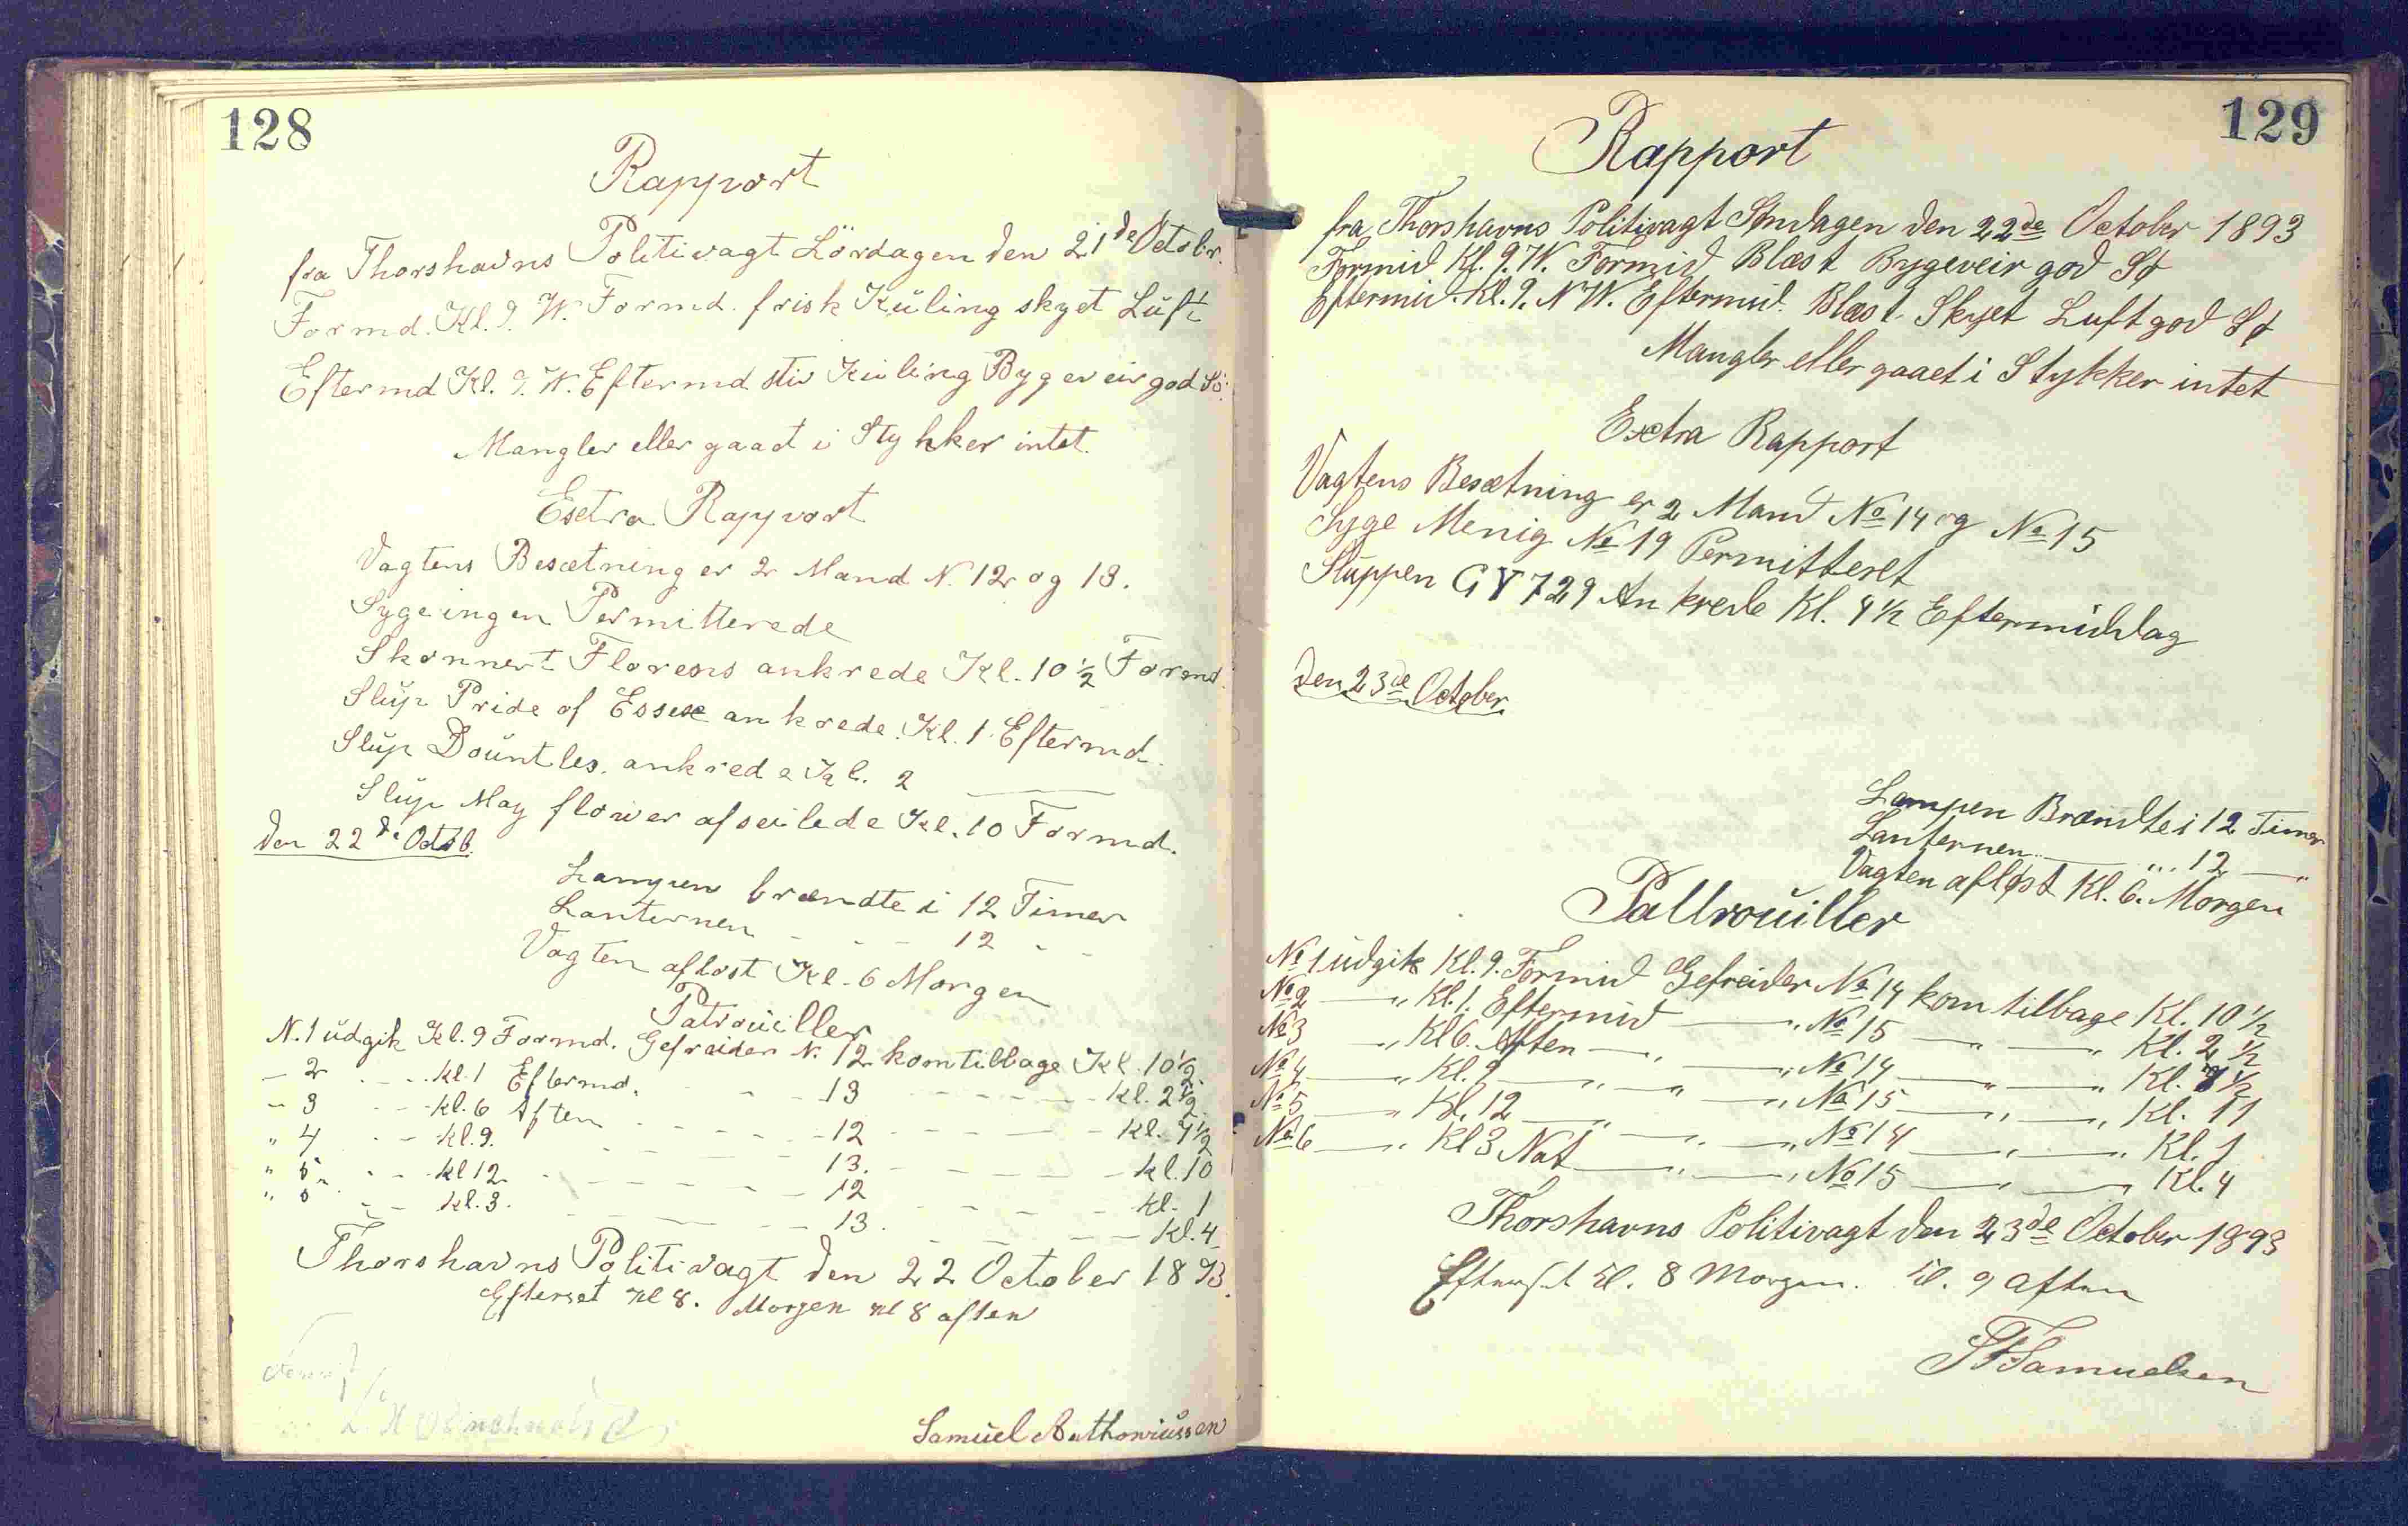 128
Rapport
fra Thorshavns Politivagt Lördagen den 21de Octobr.
Formd. Kl. 9. W. Formd. frisk Küling skyet Lüft
Eftermd Kl. 9. W. Eftermd stiv Küling Bygeveir god Sö.
Mangler eller gaaet i Stykker intet.
Extra Rapport
Vagtens Besætning er 2 Mand N. 12 og 13.
Syge ingen Permitterede
Skonnert Florens ankrede Kl. 10 ½ Formd.
Slüp Pride of Essex ankrede. Kl. 1 Eftermd.
Slüp Dountles. ankrede Kl. 2 —
Slüp May flower afseilede Kl. 10 Formd.
den 22de Octob.
Lampen brændte i 12 Timer
Lanternen - - - 12 - -
Vagten aflöst Kl. 6 Morgen
Patroüiller
N. 1 üdgik Kl. 9 Formd. Gefreider N. 12 kom tilbage Kl. 10½
— 2 - - - Kl. 1 Eftermd. - - 13 - - - - Kl. 2½
- 3 - - - Kl. 6 Aften - - - - 12 - - - - Kl. 7½
" 4 - - Kl. 9. - - - - 13. - - - - Kl. 10
" 5 - - Kl 12 - - - - 12 - - - - Kl. 1
" - - Kl. 3. - - - - 13. - - - - Kl. 4
Thorshavns Politivagt den 22 October 1893.
Efterset Kl 8. Morgen Kl 8 aften
Samüel Anthoniüssen
129
Rapport
fra Thorshavns Politivagt Søndagen den 22de October 1893
Formid Kl. 9. W. Formid Blæst Bygeveir god Sø
Eftermid. Kl. 9. NW. Eftermid. Blæst. Skyet Luft god Sø
Mangler eller gaaet i Stykker intet
Extra Rapport
Vagtens Besætning er 2 Mand No 14 og No 15
Syge Menig No 19 Permitteret
Sluppen GY 729 Ankrede Kl. 4½ Eftermiddag
den 23de October
Lampen Brændte i 12 Timer
Lanternen — ... 12 — "
Vagten afløst Kl. 6. Morgen
Pattroüiller
No 1 üdgik Kl. 9. Formid Gefreider No 14 kom tilbage Kl. 10½
No 2 — " Kl. 1. Eftermid — " No 15 — — " Kl. 2½
No 3 — " Kl 6. Aften — " — " No 14 — " — " Kl. 7½
No 4 — " Kl. 9 — " — " No 15 — " — " Kl. 11
No 5 — " Kl. 12 — " — " No 14 — " — " Kl. 1
No 6 — " Kl 3 Nat — " — " No 15 — " — " Kl. 4
Thorshavns Politivagt den 23de October 1893
Efterset Kl. 8 Morgen. Kl. 9 aften
Samuelsen